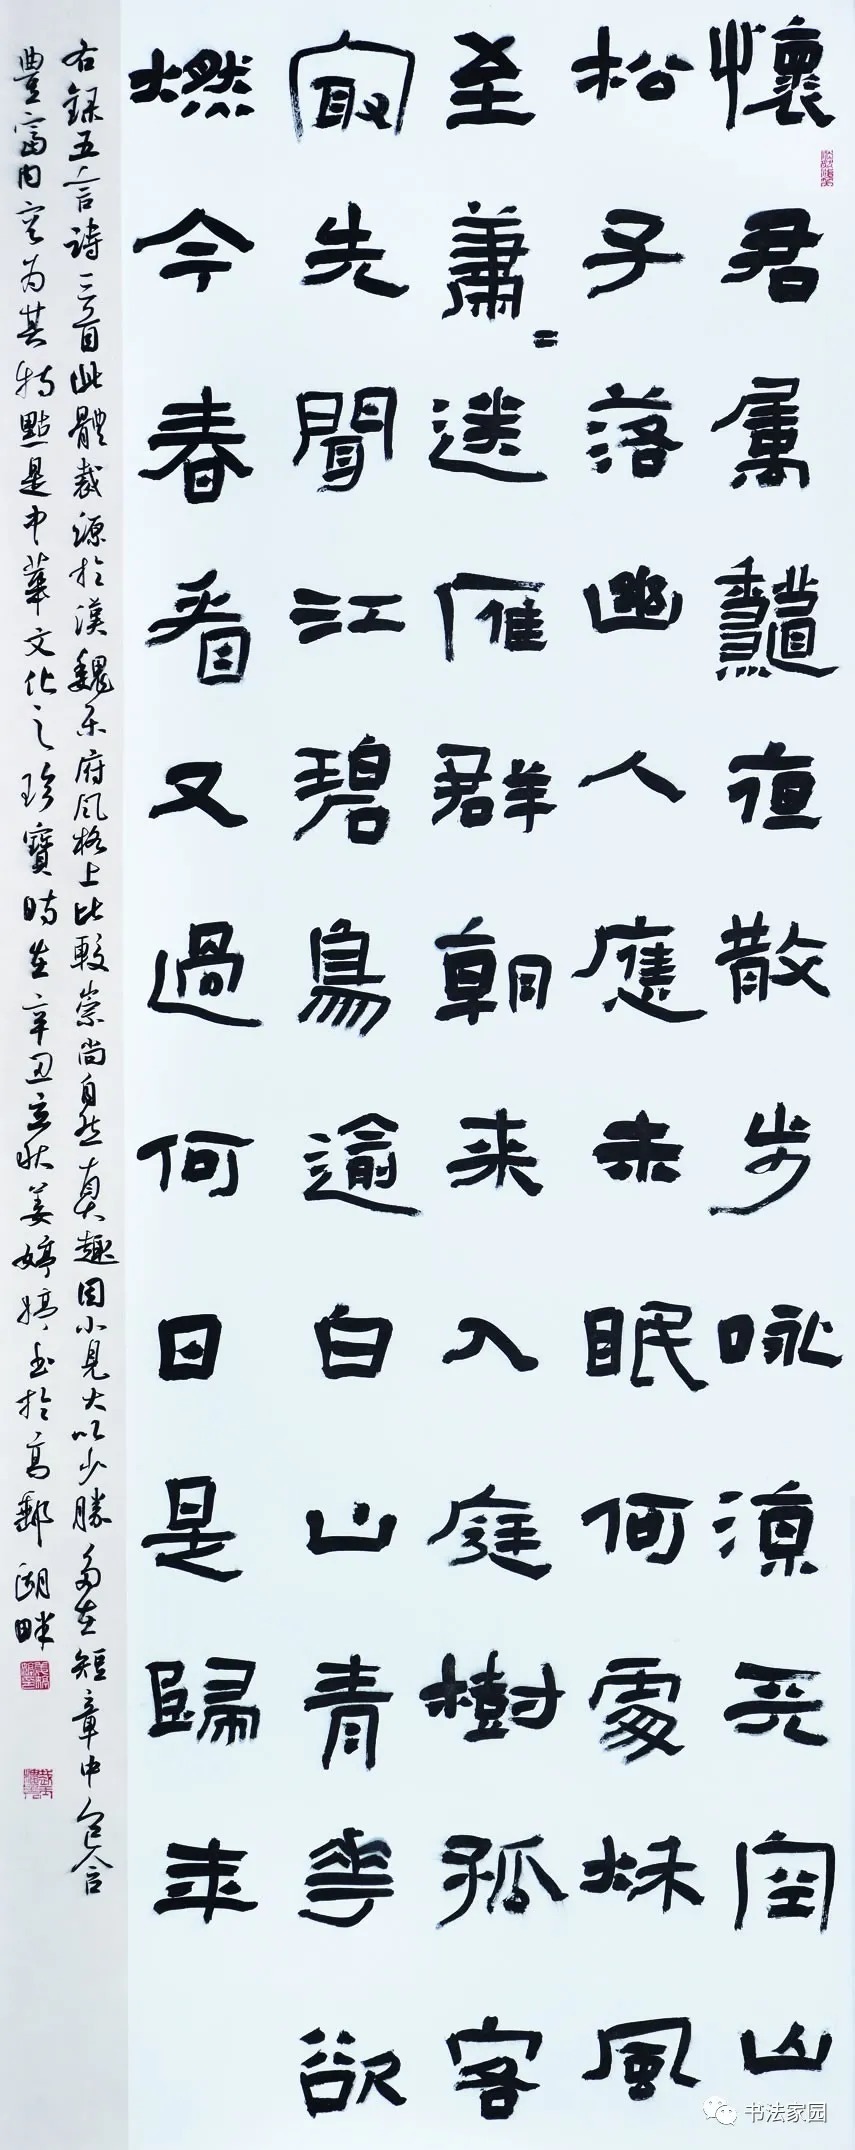 懷君屬龝夜散步咏涼天空山
松子落幽人應未眠何處秌風
至蕭〻送雁群朝来入庭樹孤客
冣先聞江碧鳥逾白山青華欲
燃今春看又過何日是歸年
右録五言詩三首此體裁源於漢魏乐府風格上比較崇尚自然真趣因小見大以少勝多在短章中包含
豐富内容为其特點是中華文化之珍寶時在辛丑立秋姜婷婷书於高郵湖畔
书法家园